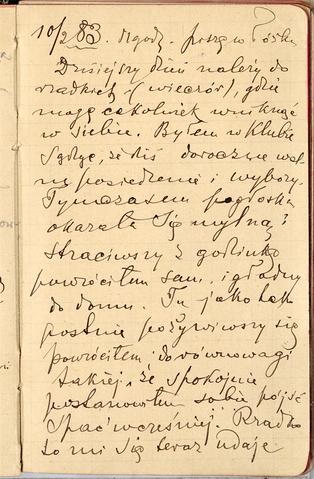 10/2 83. godz. piszę w łóżku
Dzisiejszy dzień należy do
rzadkich (wieczór), gdzie
mogę cokolwiek wniknąć
w siebie. Byłem w Klubie
sądząc, że dziś doroczne wal-
ne posiedzenie i wybory.
Tymczasem pogłoska
okazała się mylną;
straciwszy z godzinkę
powróciłem sam, i głodny
do domu. Tu jako tako
postnie pożywiwszy się
powróciłem do równowagi
takiej, że spokojnie
postanowiłem sobie pójść
spać wcześniej. Rzadko
to mi się teraz udaje